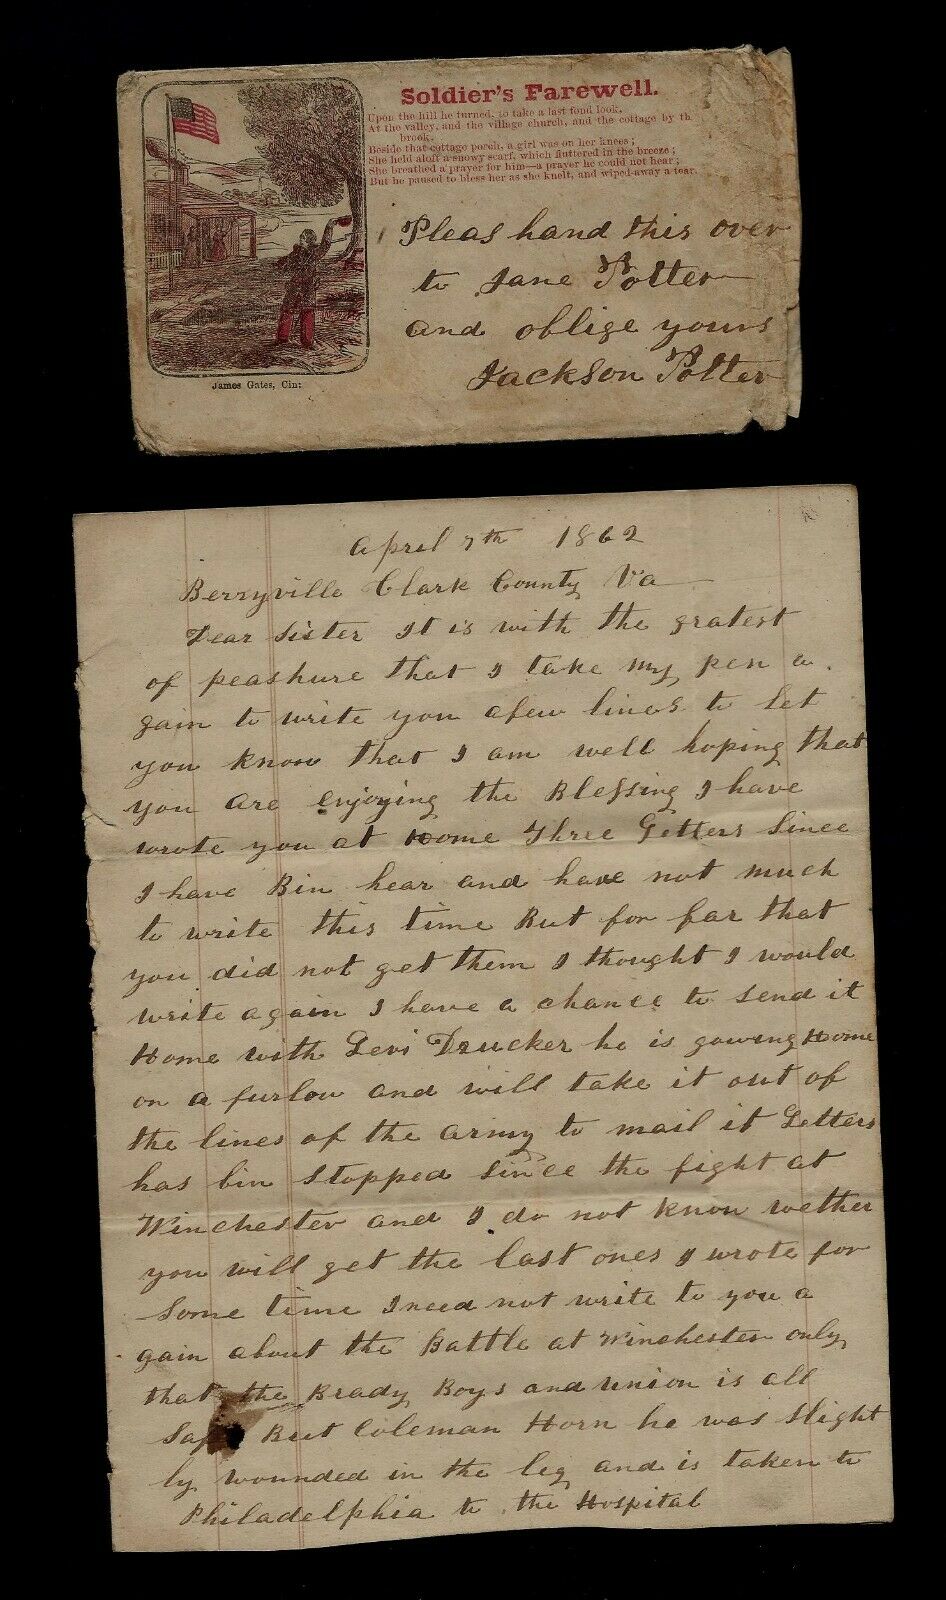 Soldier's Farewell.
Upon the hill he turned, to take a last fond look,
At the valley, and the village church, and the cottage by th
brook.
Beside that cottage porch, a girl was on her knees;
She held aloft a snowy scarf, which fluttered in the breeze;
She breathed a prayer for him—a prayer he could not hear;
But he paused to bless her as she knelt, and wiped away a tear.
Pleas hand this over
to Jane Potter
and oblige yours
Jackson Potter
James Gates, Cin:
April 7th 1862
Berryville Clark County Va
Dear Sister It is with the gratest
of peashure that I take my pen a
gain to write you afew lines to let
you know that I am well hoping that
you are enjoying the Blessing I have
wrote you at Home Three Letters Since
I have Bin hear and have not much
to write this time But for far that
you did not get them I thought I would
write again I have a chance to send it
Home with Levi Drucker he is gowing Home
on a furlow and will take it out of
the lines of the army to mail it Letters
has bin stopped since the fight at
Winchester and I do not know wether
you will get the last ones I wrote for
some time I need not write to you a
gain about the Battle at Winchester only
that the Brady Boys and union is all
Saf But Coleman Horn he was Slight
ly wounded in the leg and is taken to
Philadelphia to the Hospital